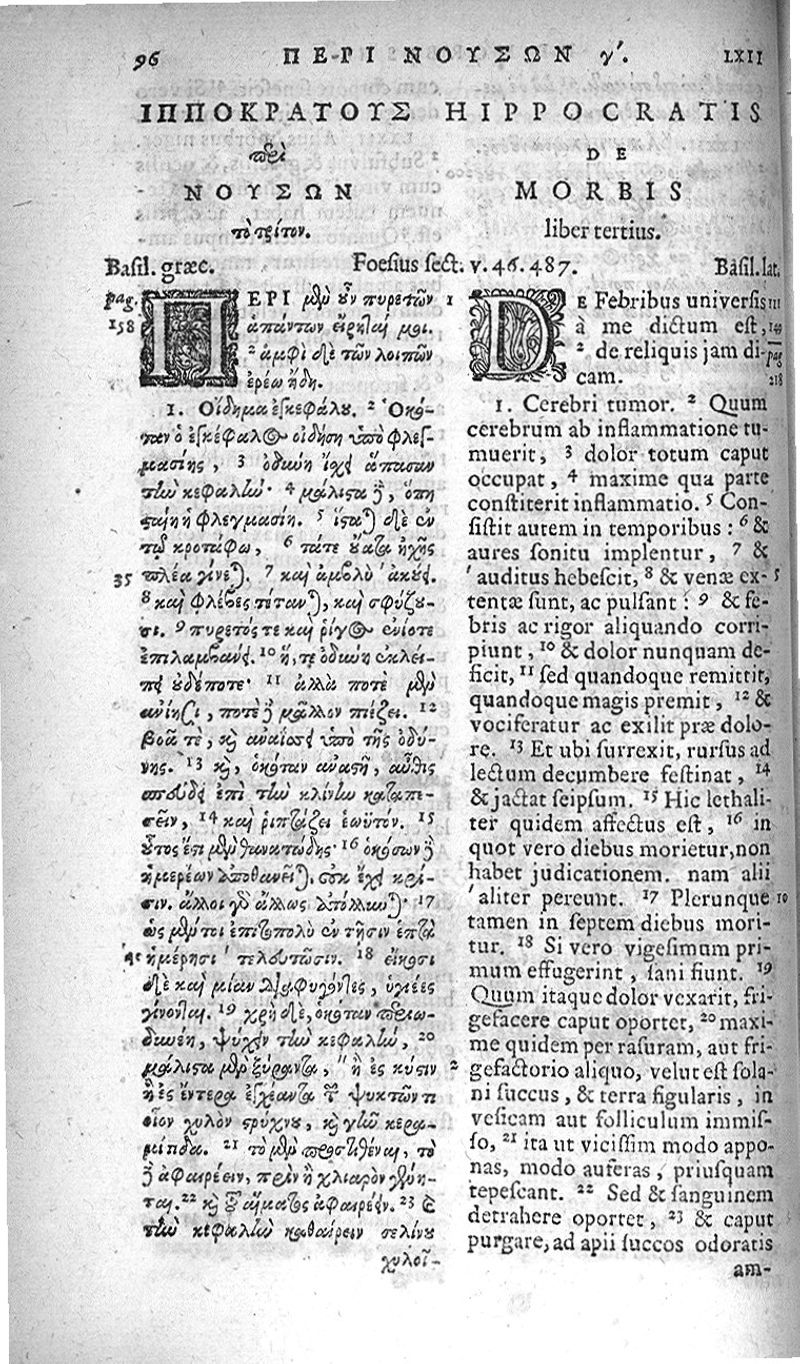 96 ΠΕΡΙ ΝΟΥΣΩΝ γʹ. LXII
ΙΠΠΟΚΡΑΤΟΥΣ
περὶ
ΝΟΥΣΩΝ
τὸ τρίτον.
HIPPOCRATIS
DE
MORBIS
liber tertius.
Basil. græc. Foesius sect. v. 46. 487. Basil. lat.
pag.
158
ΠΕΡΙ μὲν οὖν πυρετῶν
ἁπάντων εἴρηταί μοι.
² ἀμφὶ δὲ τῶν λοιπῶν
ἐρέω ἤδη.
1. Οἴδημα ἐγκεφάλου. ² Ὁκό-
ταν ὁ ἐγκέφαλος οἰδήσῃ ὑπὸ φλεγ-
μασίης, 3 ὀδύνη ἴσχει ἅπασαν
τὴν κεφαλήν· 4 μάλιστα δὲ, ὅπη
σταίη ἡ φλεγμασίη. 5 ἵσταται δὲ ἐν
τῷ κροτάφῳ, 6 τά τε οὔατα ἠχῆς
35 πλέα γίνεται. 7 καὶ ἀμβλὺ ἀκούει.
8 καὶ φλέβες τέτανται, καὶ σφύζου-
σι. 9 πυρετός τε καὶ ῥῖγος ἐνίοτε
ἐπιλαμβάνει. 10 ἥ, τε ὀδύνη ἐκλεί-
πει οὐδέποτε· 11 ἀλλὰ ποτὲ μὲν
ἀνίησι, ποτὲ δὲ μᾶλλον πιέζει. 12
βοᾷ τὲ, καὶ ἀναΐσσει ὑπὸ τῆς ὀδύ-
νης. 13 καὶ, ὁκόταν ἀναστῇ, αὖθις
σπεύδει ἐπὶ τὴν κλίνην καταπε-
σεῖν, 14 καὶ ῥιπτάζει ἑωυτόν. 15
οὗτος ἐστὶ μὲν θανατώδης· 16 ὁκόσων δὲ
ἡμερέων ἀποθανεῖται, οὐκ ἔχει κρί-
σιν. ἄλλοι γὰρ ἄλλως ἀπόλλυνται· 17
ὡς μέντοι ἐπιτοπολὺ ἐν τῇσιν ἑπτὰ
ἡμέρῃσι τελευτῶσιν. 18 εἴκοσι
δὲ καὶ μίαν διαφυγόντες, ὑγιέες
γίνονται. 19 χρὴ δὲ, ὁκόταν περιω-
δυνέῃ, ψύχειν τὴν κεφαλὴν, 20
μάλιστα μὲν ξύραντα, ἢ ἐς κύστιν
ἢ ἐς ἔντερα ἐγχέαντα τῶν ψυκτῶν τι
οἷον χυλὸν στρύχνου, καὶ γῆν κερα-
μίτιδα. 21 τὸ μὲν προστιθέναι, τὸ
δὲ ἀφαιρέειν, πρὶν ἢ χλιαρὸν γένη-
ται. 22 καὶ τοῦ αἵματος ἀφαιρέειν. 23 καὶ
τὴν κεφαλὴν καθαίρειν σελίνου
χυλοῖ-
1 DE Febribus universis
à me dictum est, 149
² de reliquis jam di- pag
cam. 218
1. Cerebri tumor. ² Quum
cerebrum ab inflammatione tu-
muerit, 3 dolor totum caput
occupat, 4 maxime qua parte
constiterit inflammatio. 5 Con-
sistit autem in temporibus: 6 &
aures sonitu implentur, 7 &
auditus hebescit, 8 & venæ ex- 5
tentæ sunt, ac pulsant: 9 & fe-
bris ac rigor aliquando corri-
piunt, 10 & dolor nunquam de-
ficit, 11 sed quandoque remittit,
quandoque magis premit, 12 &
vociferatur ac exilit præ dolo-
re. 13 Et ubi surrexit, rursus ad
lectum decumbere festinat, 14
& jactat seipsum. 15 Hic lethali-
ter quidem affectus est, 16 in
quot vero diebus morietur, non
habet judicationem. nam alii
aliter pereunt. 17 Plerunque 10
tamen in septem diebus mori-
tur. 18 Si vero vigesimum pri-
mum effugerint, sani fiunt. 19
Quum itaque dolor vexarit, fri-
gefacere caput oportet, 20 maxi-
me quidem per rasuram, aut fri-
2 gefactorio aliquo, velut est sola-
ni succus, & terra figularis, in
vesicam aut folliculum immis-
so, 21 ita ut vicissim modo appo-
nas, modo auferas, priusquam
tepescant. 22 Sed & sanguinem
detrahere oportet, 23 & caput
purgare, ad apii succos odoratis
am-